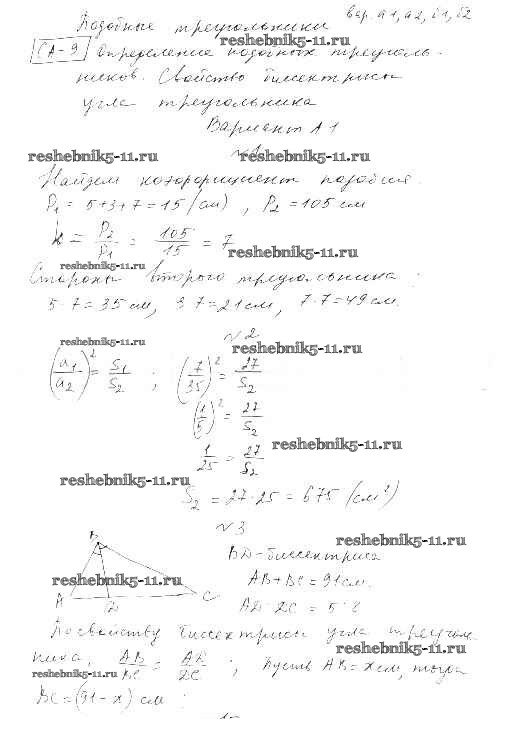 вар. А1, А2, Б1, Б2
Подобные треугольники
reshebnik5-11.ru
СА-9 Определение подобных треуголь-
ников. Свойство биссектрисы
угла треугольника
Вариант А1
reshebnik5-11.ru №1 reshebnik5-11.ru
Найдем коэффициент подобия.
P₁ = 5+3+7=15 (см), P₂ = 105 см
k = P₂/P₁ = 105/15 = 7
reshebnik5-11.ru
reshebnik5-11.ru
Стороны второго треугольника:
5·7=35 см, 3·7=21 см, 7·7=49 см.
№2
reshebnik5-11.ru reshebnik5-11.ru
(a₁/a₂)² = S₁/S₂ ; (7/35)² = 27/S₂
(1/5)² = 27/S₂
1/25 = 27/S₂ reshebnik5-11.ru
reshebnik5-11.ru
S₂ = 27·25 = 675 (см²)
№3
reshebnik5-11.ru
B BD-биссектриса
reshebnik5-11.ru AB+BC=91 см.
A D C AD:DC = 5:8
По свойству биссектрисы угла треуголь-
reshebnik5-11.ru
ника, AB/BC = AD/DC ; пусть AB=x см, тогда
reshebnik5-11.ru
BC=(91-x) см